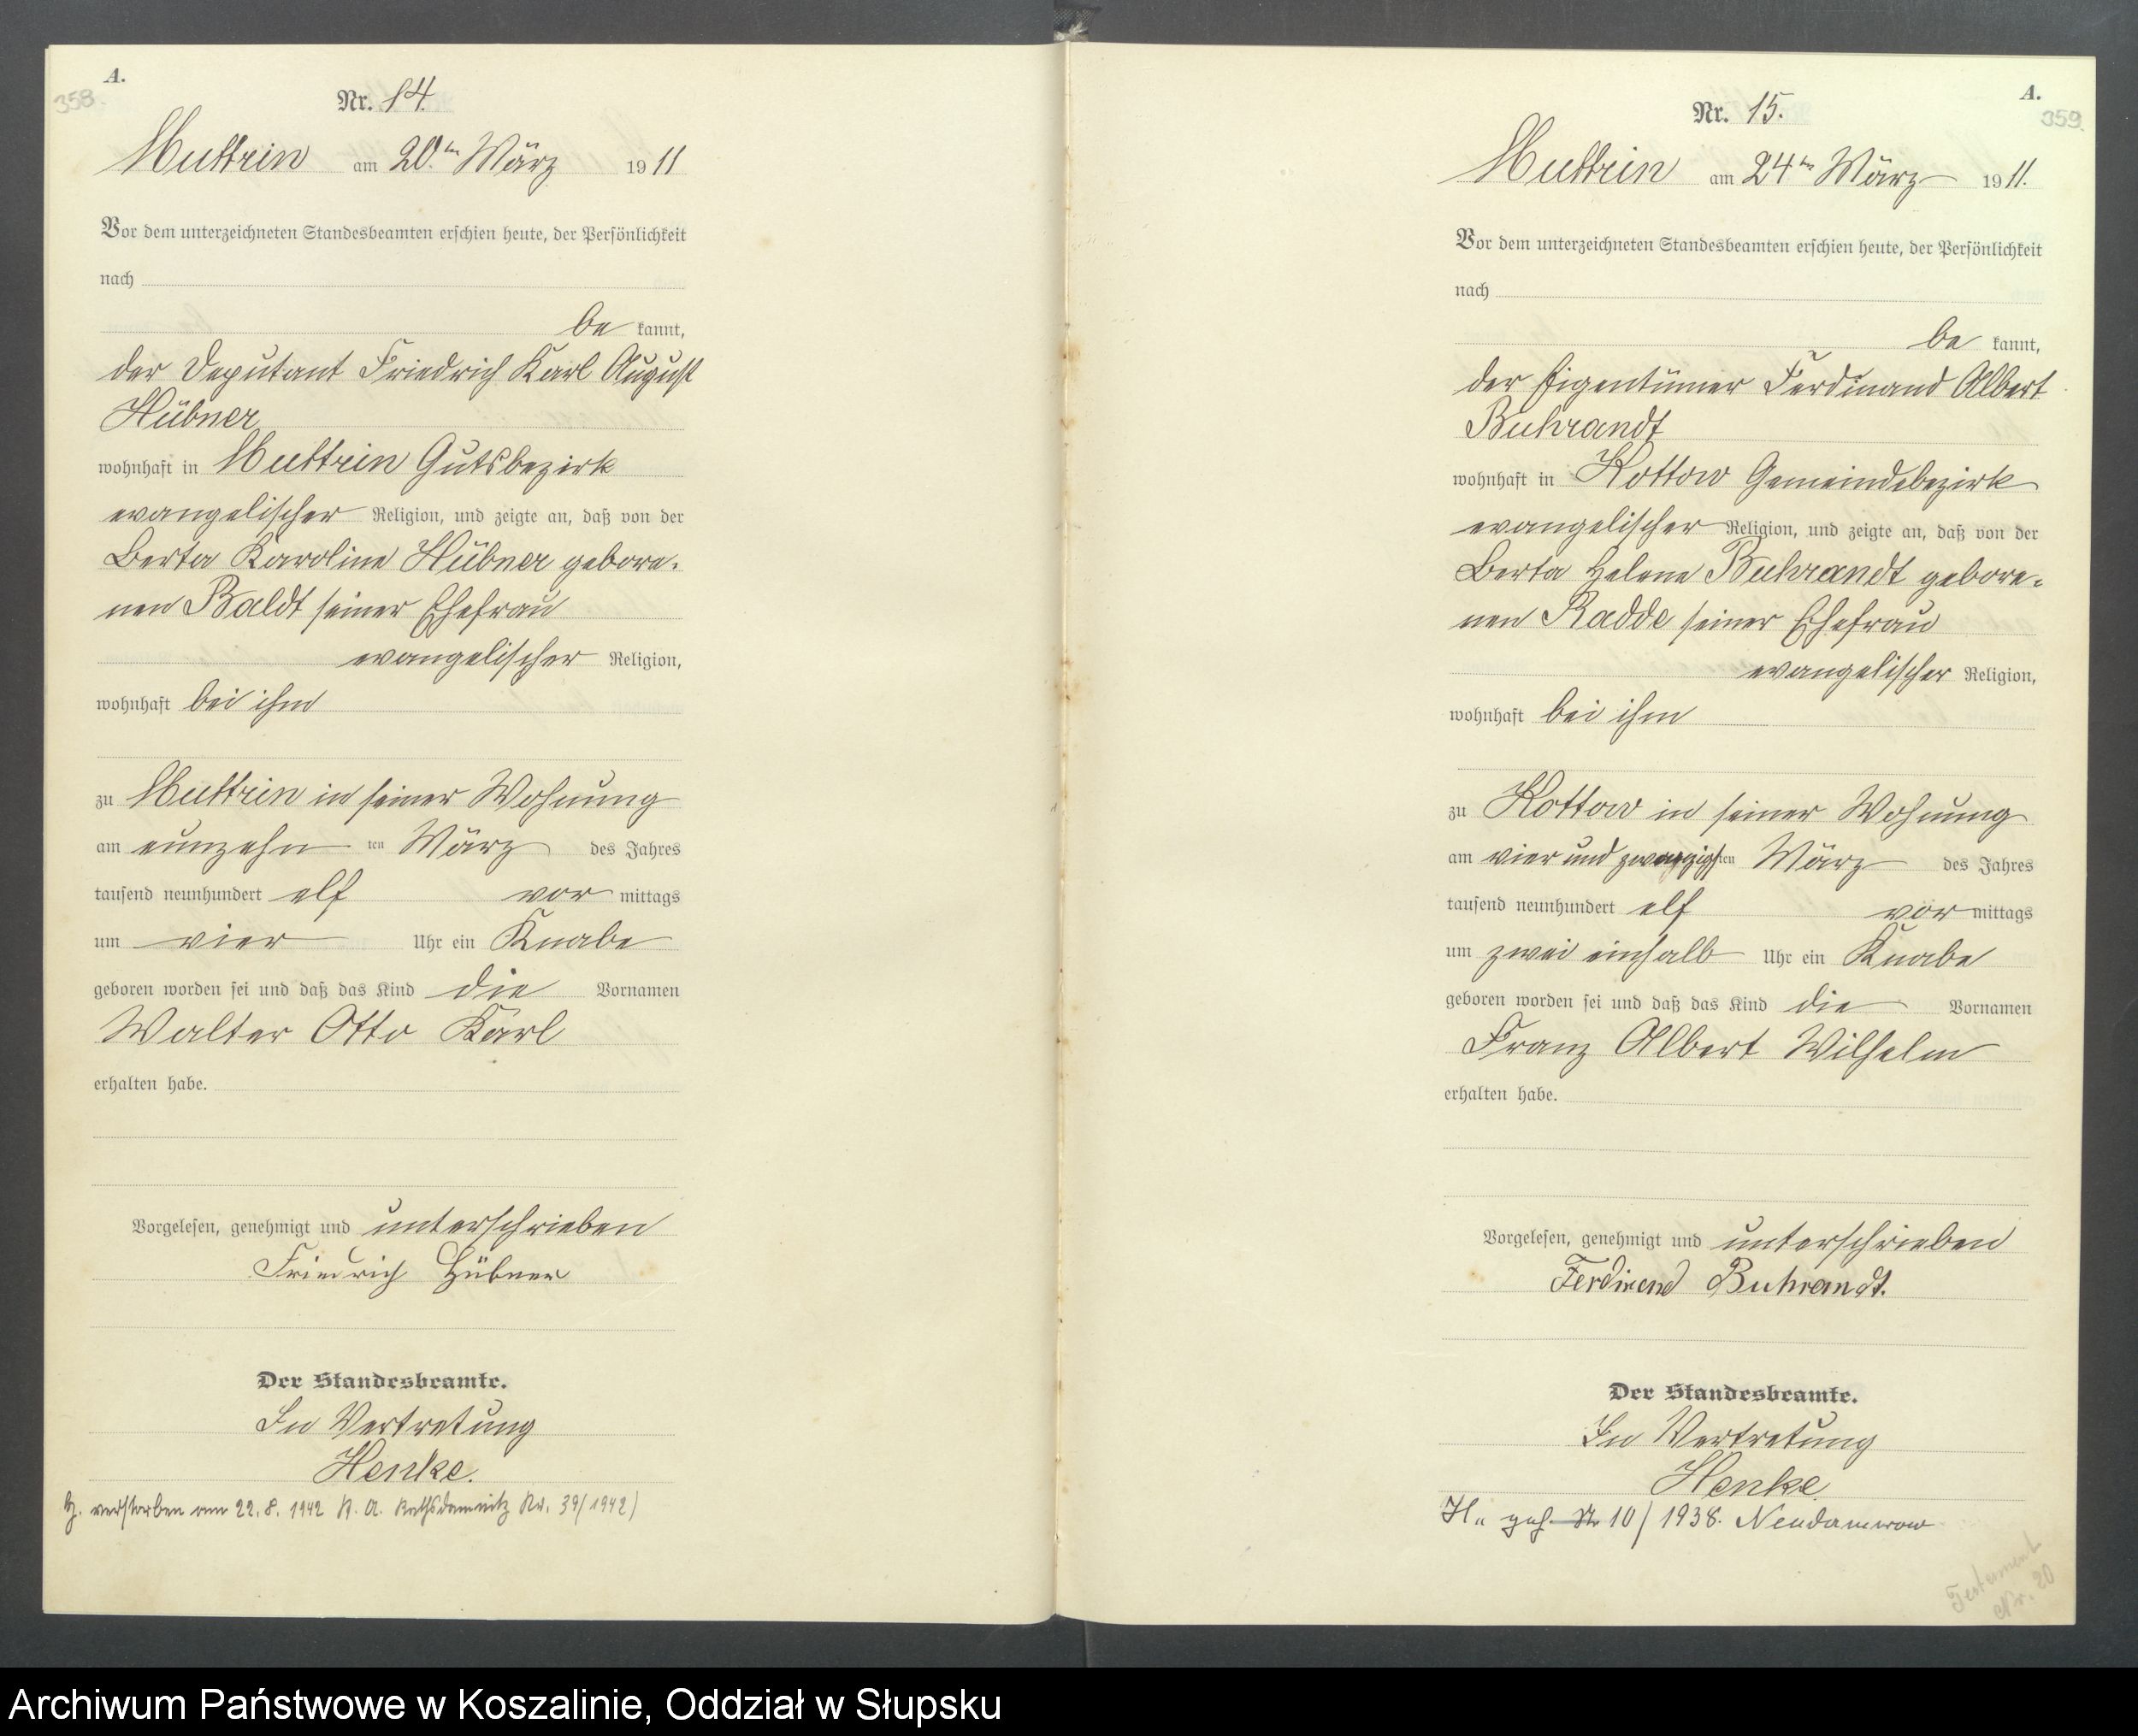 A.
358.
Nr. 14.
Muttrin am 20.ten März 1911
Vor dem unterzeichneten Standesbeamten erschien heute, der Persönlichkeit
nach
be kannt,
der Deputant Friedrich Karl August
Hübner
wohnhaft in Muttrin Gutsbezirk
evangelischer Religion, und zeigte an, daß von der
Berta Karoline Hübner gebore-
nen Baldt seiner Ehefrau
evangelischer Religion,
wohnhaft bei ihm
zu Muttrin in seiner Wohnung
am neunzehn ten März des Jahres
tausend neunhundert elf vor mittags
um vier Uhr ein Knabe
geboren worden sei und daß das Kind die Vornamen
Walter Otto Karl
erhalten habe.
Vorgelesen, genehmigt und unterschrieben
Friedrich Hübner
Der Standesbeamte.
In Vertretung
Henke.
verstorben am 22.8.1942 St. A. Rathsdamnitz Nr. 39/1942)
A.
359.
Nr. 15.
Muttrin am 24ten März 1911.
Vor dem unterzeichneten Standesbeamten erschien heute, der Persönlichkeit
nach
be kannt,
der Eigentümer Ferdinand Albert
Buhrandt
wohnhaft in Kottow Gemeindebezirk
evangelischer Religion, und zeigte an, daß von der
Berta Helene Buhrandt gebore-
nen Radde seiner Ehefrau
evangelischer Religion,
wohnhaft bei ihm
zu Kottow in seiner Wohnung
am vier und zwanzigsten März des Jahres
tausend neunhundert elf vor mittags
um zwei einhalb Uhr ein Knabe
geboren worden sei und daß das Kind die Vornamen
Franz Albert Wilhelm
erhalten habe.
Vorgelesen, genehmigt und unterschrieben
Ferdinand Buhrandt.
Der Standesbeamte.
In Vertretung
Henke
10/1938. Neudamerow
Testament
Nr. 20
Archiwum Państwowe w Koszalinie, Oddział w Słupsku